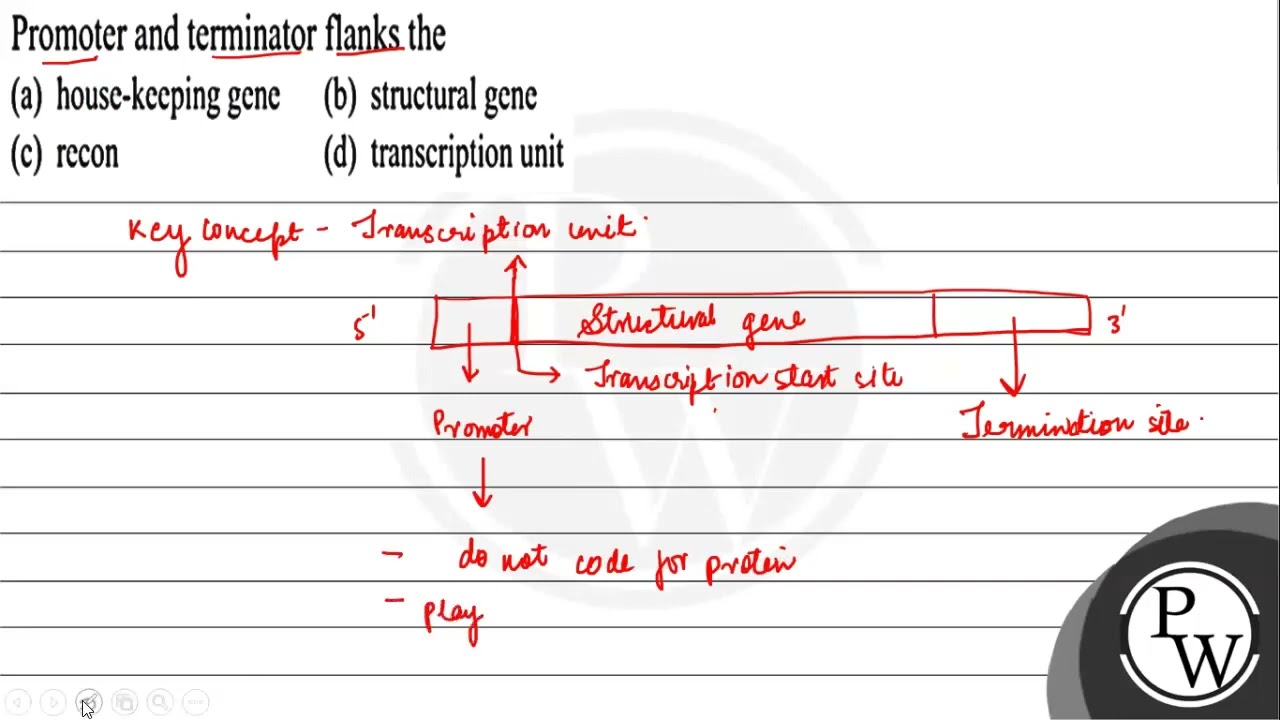 Promoter and terminator flanks the
(a) house-keeping gene (b) structural gene
(c) recon (d) transcription unit
Key concept - Transcription unit
5' Structural gene 3'
Transcription start site
Promoter
Termination site.
- do not code for protein
- play
P
W
PW